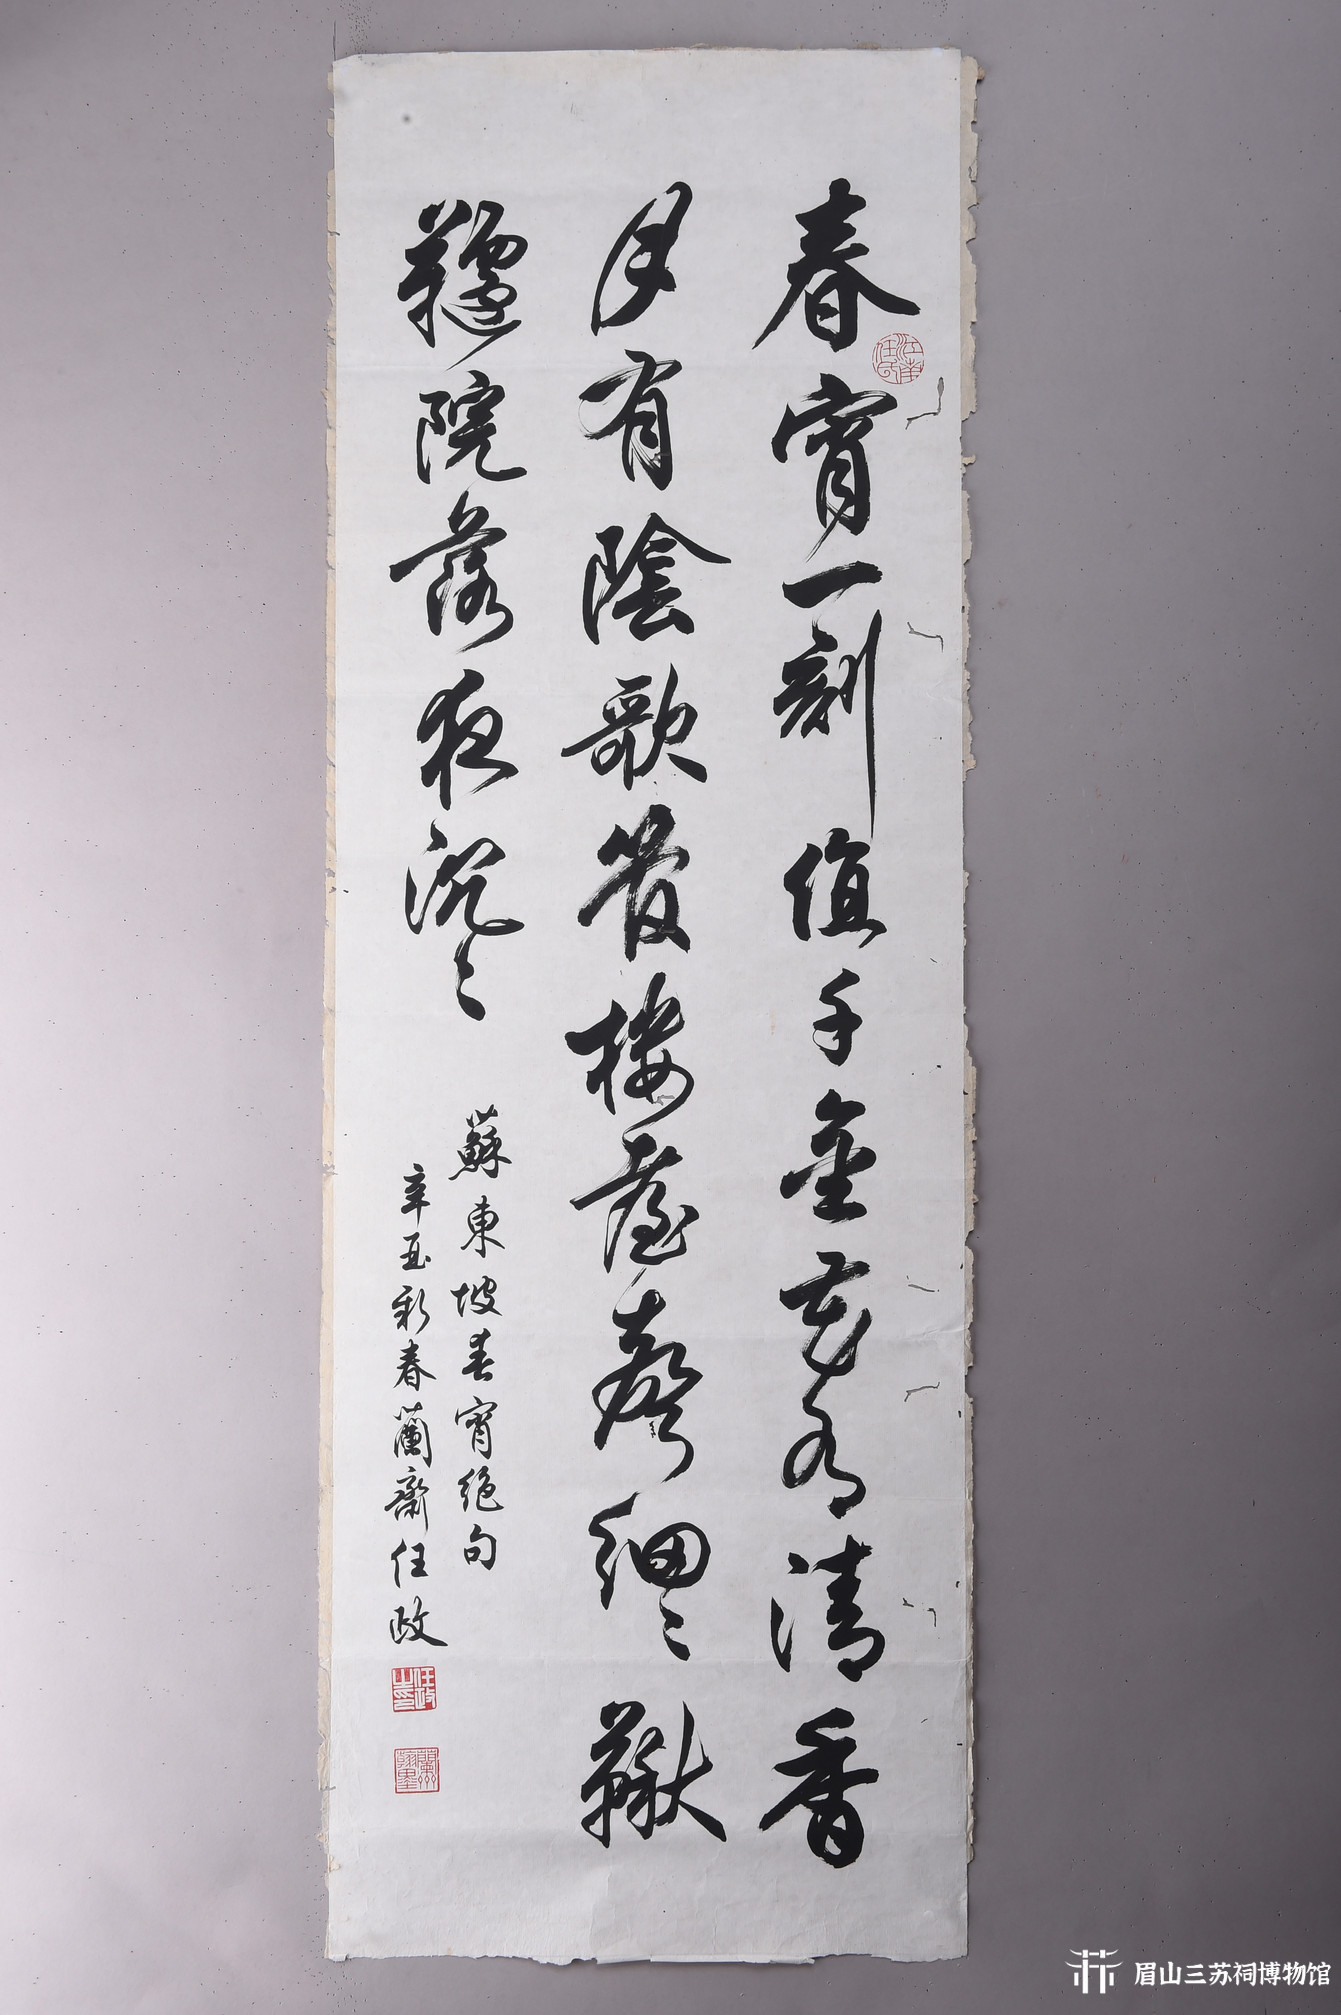 春宵一刻值千金花有清香
月有陰歌管樓臺聲細〻鞦
韆院落夜沉〻
蘇東坡春宵絕句
辛酉新春蘭齋任政
任政之印
眉山三苏祠博物馆